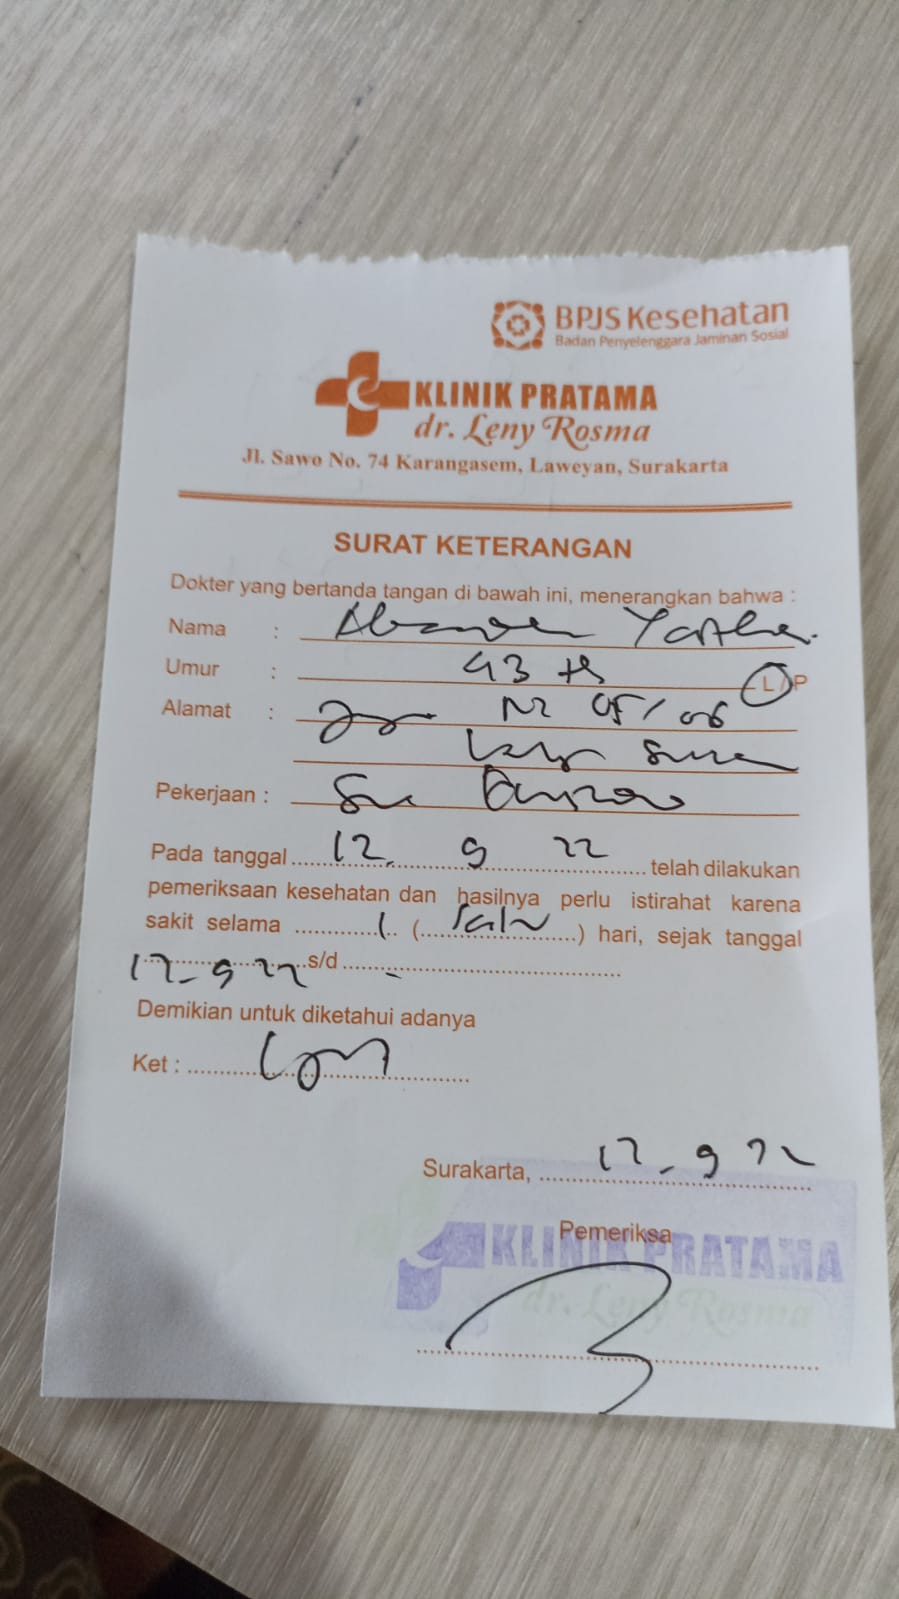 BPJS Kesehatan
Badan Penyelenggara Jaminan Sosial
KLINIK PRATAMA
dr. Leny Rosma
Jl. Sawo No. 74 Karangasem, Laweyan, Surakarta
SURAT KETERANGAN
Dokter yang bertanda tangan di bawah ini, menerangkan bahwa :
Nama :
Umur : 43 th L / P
Alamat : 05/06
Pekerjaan :
Pada tanggal 12. 9 22 telah dilakukan
pemeriksaan kesehatan dan hasilnya perlu istirahat karena
sakit selama 1 (satu) hari, sejak tanggal
12-9 22 s/d -
Demikian untuk diketahui adanya
Ket :
Surakarta, 12-9 22
Pemeriksa
KLINIK PRATAMA
dr. Leny Rosma